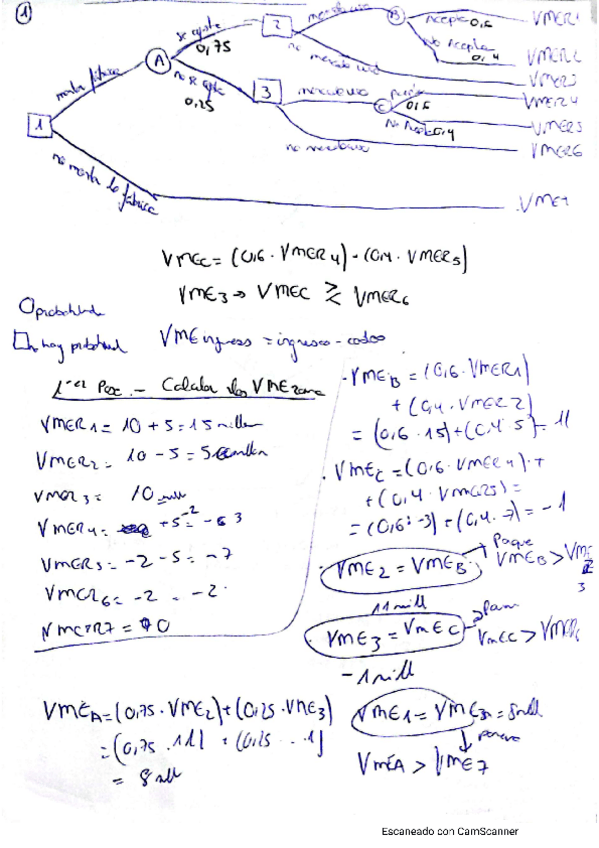 1
2
B
Acepta 0,6
VMER1
se ajuste
0,75
No Acepta
0,4
VMER2
A
no mercado
VMER3
monta fábrica
no se ajuste
0,25
3
0,6
VMER4
1
C
No
0,4
VMER5
no
VMER6
no monta la fábrica
VME7
VMEC = (0,6 · VMER4) - (0,4 · VMER5)
VME3 → VMEC ≷ VMER6
probabilidad
no hay probabilidad
VME ingresos = ingresos - costos
1er Paso.- Calcular los VME
VMER1 = 10 + 5 = 15 millon
VMER2 = 10 - 5 = 5 millon
VMER3 = 10 mill
VMER4 = +5 - 2 = 3
VMER5 = -2 - 5 = -7
VMER6 = -2 = -2
VMER7 = 0
· VMEB = (0,6 · VMER1)
+ (0,4 · VMER2)
= (0,6 · 15) + (0,4 · 5) = 11
· VMEC = (0,6 · VMER4) +
+ (0,4 · VMER5) =
= (0,6 · -3) + (0,4 · -7) = -1
· VME2 = VMEB
Porque
VMEB > VME
3
11 mill
· VME3 = VMEC
VMEC > VMER6
-1 mill
VMEA = (0,75 · VME2) + (0,25 · VME3)
= (0,75 · 11) + (0,25 · -1)
= 8 mill
VME1 = VMEA = 8 mill
porque
VMEA > VME7
Escaneado con CamScanner